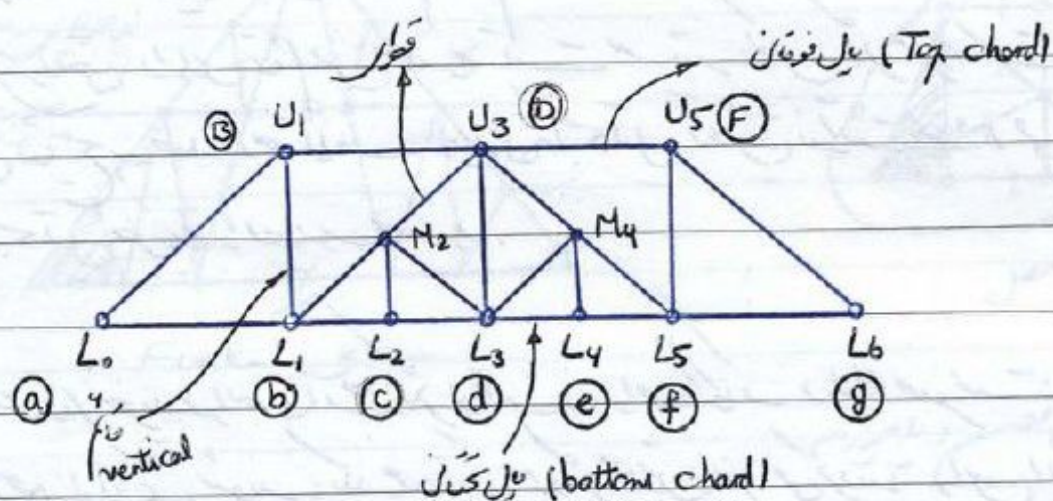 یال فوقانی (Top chord)
Ⓑ U₁ U₃ Ⓓ U₅ Ⓕ
M₂ M₄
L₀ L₁ L₂ L₃ L₄ L₅ L₆
ⓐ ⓑ ⓒ ⓓ ⓔ ⓕ ⓖ
vertical
یال تحتانی (bottom chord)